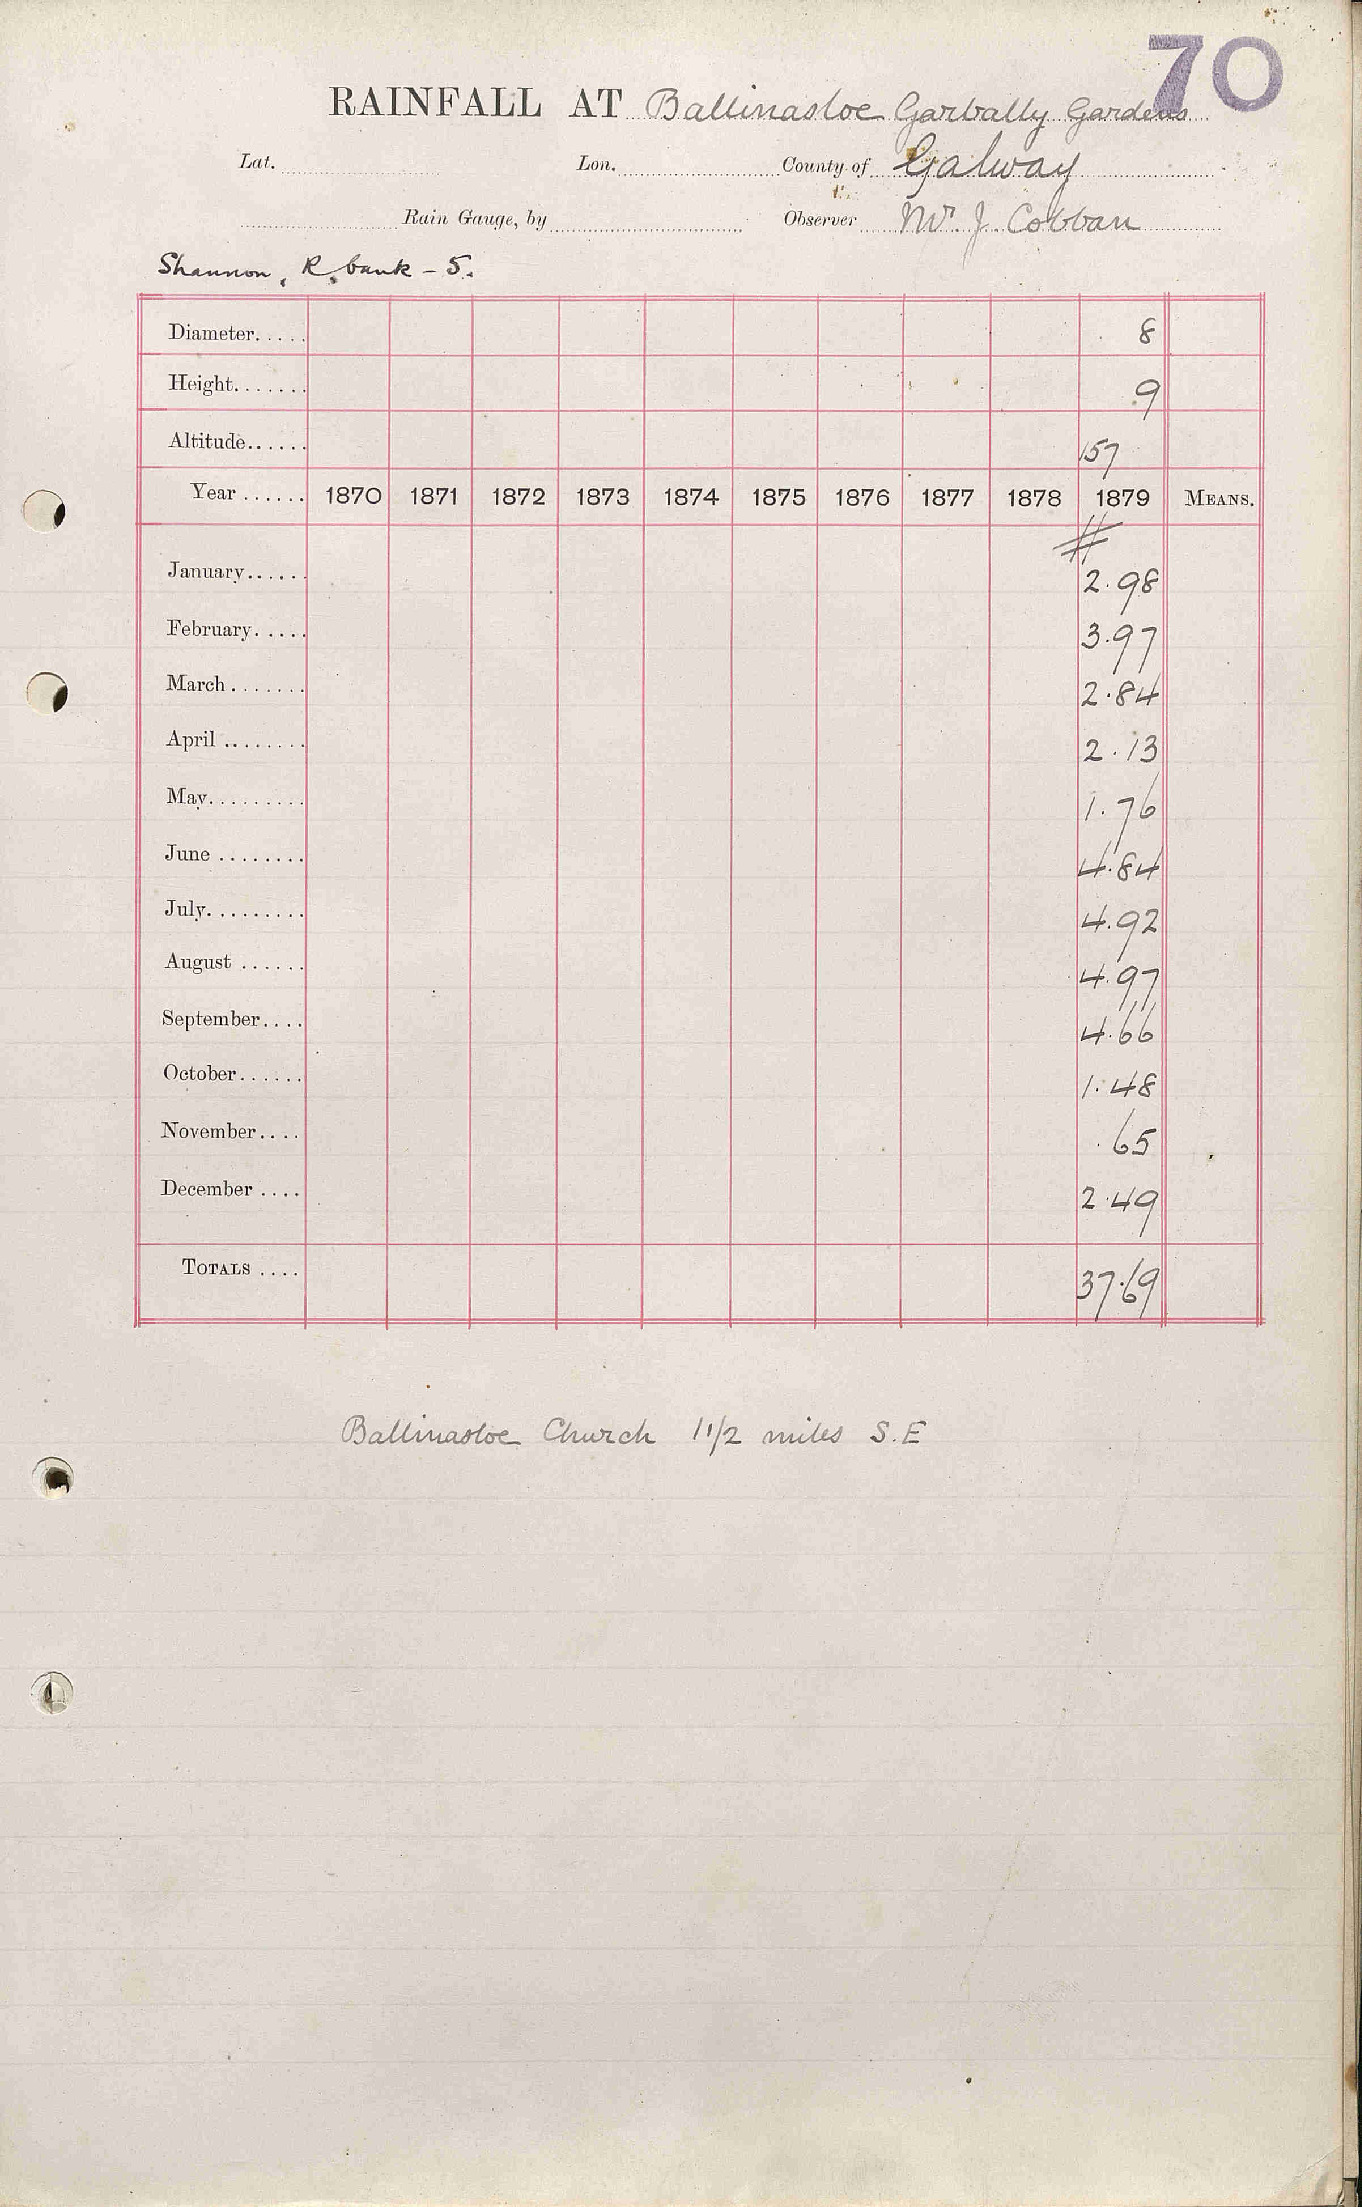 70
RAINFALL AT Ballinasloe Garbally Gardens
Lat. Lon. County of Galway
Rain Gauge, by Observer Mr J. Cobban
Shannon, R. bank - 5.
Diameter..... 8
Height....... 9
Altitude...... 157
Year ...... 1870 1871 1872 1873 1874 1875 1876 1877 1878 1879 MEANS.
#
January...... 2.98
February..... 3.97
March ....... 2.84
April ........ 2.13
May......... 1.76
June ........ 4.84
July......... 4.92
August ...... 4.97
September.... 4.66
October...... 1.48
November.... .65
December .... 2.49
TOTALS .... 37.69
Ballinasloe Church 1 1/2 miles S.E